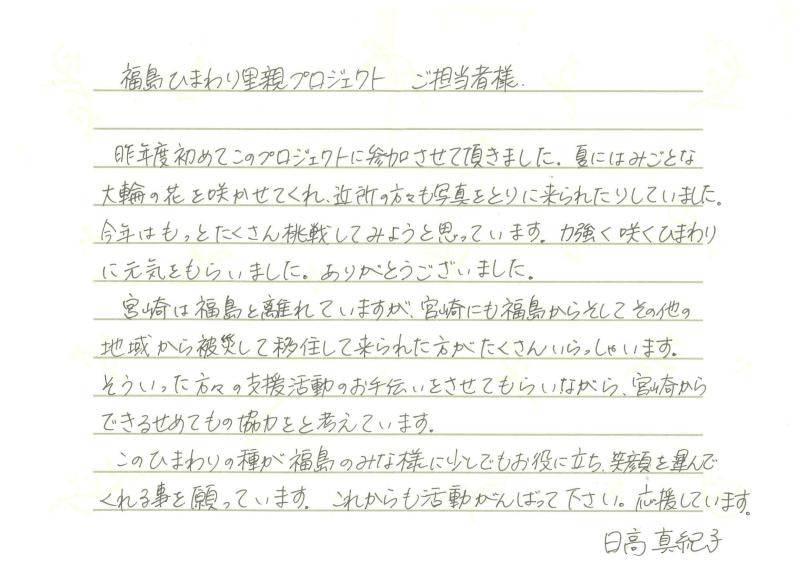 福島ひまわり里親プロジェクト　ご担当者様.
昨年度初めてこのプロジェクトに参加させて頂きました。夏にはみごとな
大輪の花を咲かせてくれ、近所の方々も写真をとりに来られたりしていました。
今年はもっとたくさん挑戦してみようと思っています。力強く咲くひまわり
に元気をもらいました。ありがとうございました。
宮崎は福島と離れていますが、宮崎にも福島からそしてその他の
地域から被災して移住して来られた方がたくさんいらっしゃいます。
そういった方々の支援活動のお手伝いをさせてもらいながら、宮崎から
できるせめてもの協力をと考えています。
このひまわりの種が福島のみな様に少しでもお役に立ち、笑顔を運んで
くれる事を願っています。これからも活動がんばって下さい。応援しています。
日高真紀子